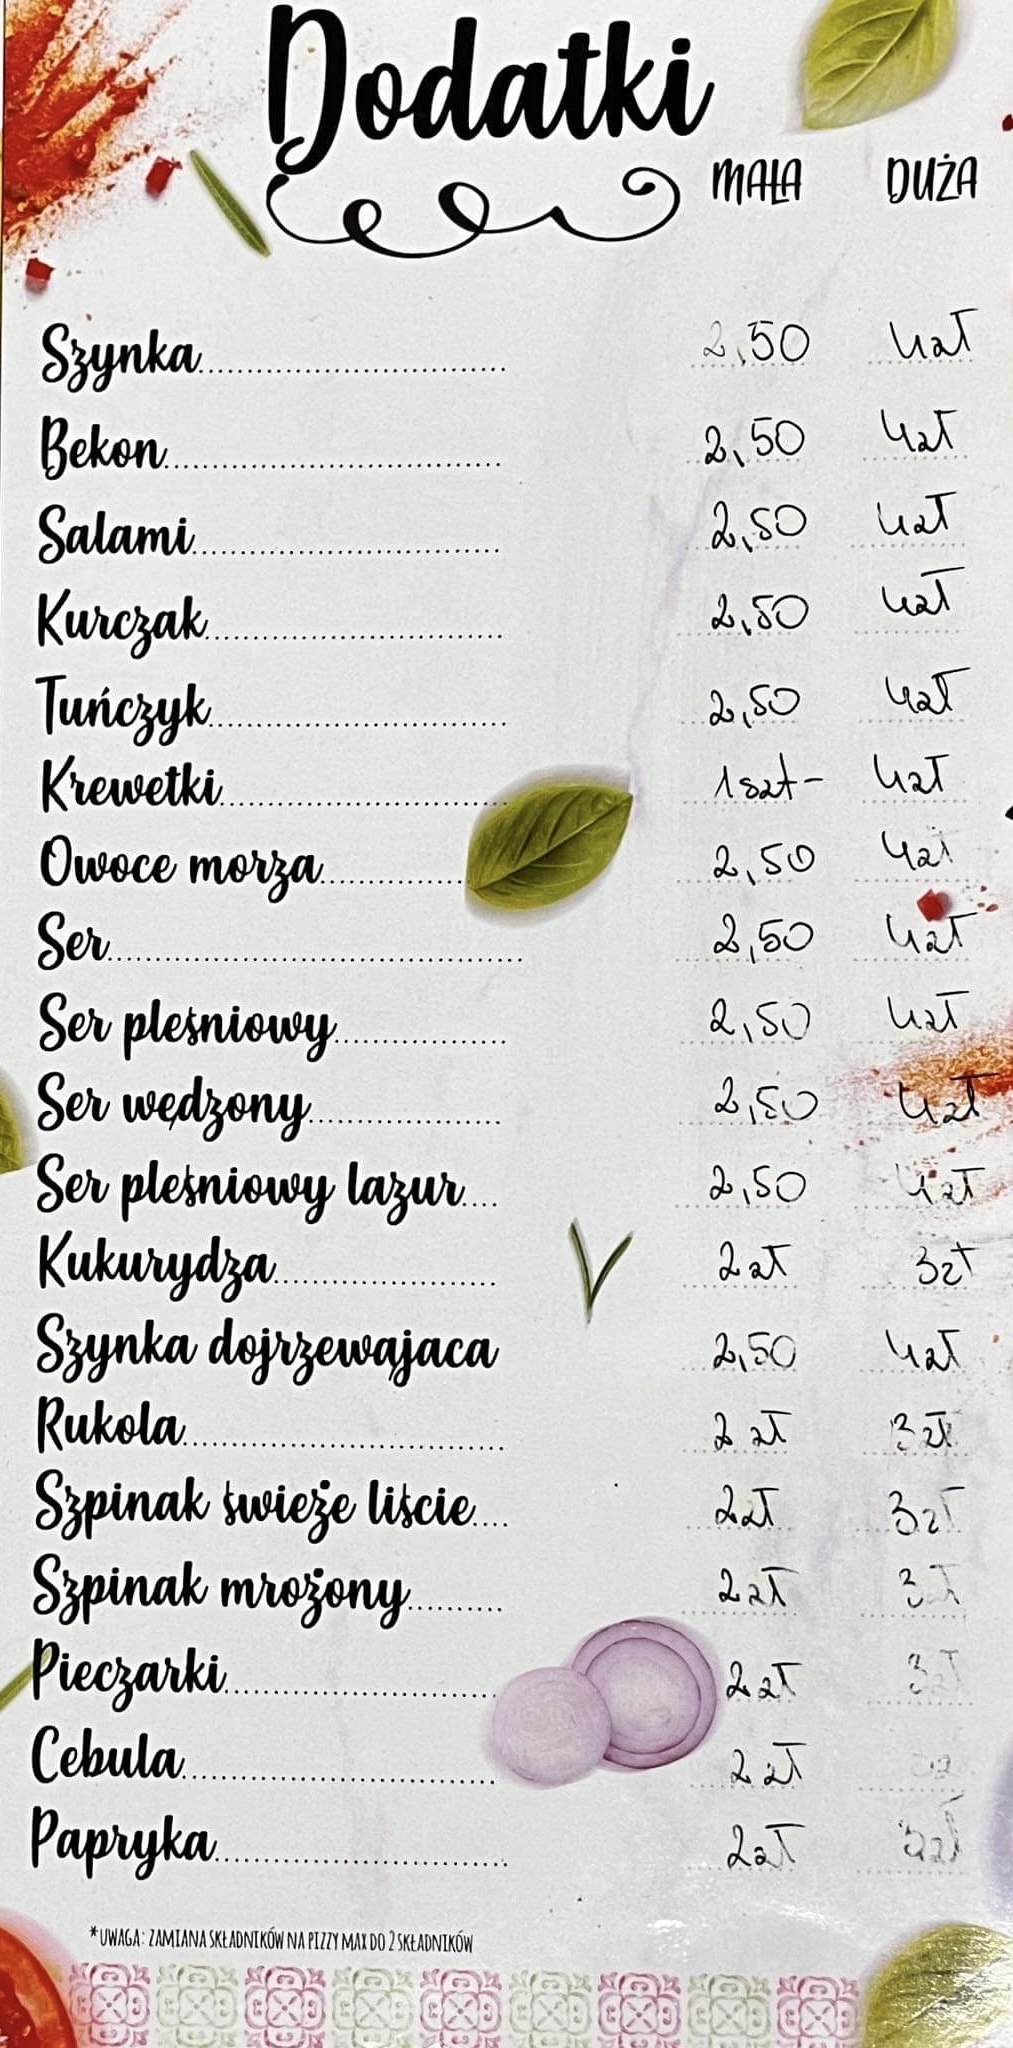 Dodatki
MAŁA DUŻA
Szynka 2,50 4zł
Bekon 2,50 4zł
Salami 2,50 4zł
Kurczak 2,50 4zł
Tuńczyk 2,50 4zł
Krewetki 1szt- 4zł
Owoce morza 2,50 4zł
Ser 2,50 4zł
Ser pleśniowy 2,50 4zł
Ser wędzony 2,50 4zł
Ser pleśniowy lazur 2,50 4zł
Kukurydza 2zł 3zł
Szynka dojrzewajaca 2,50 4zł
Rukola 2 zł 3zł
Szpinak świeże liście 2zł 3zł
Szpinak mrożony 2zł 3zł
Pieczarki 2zł 3zł
Cebula 2zł
Papryka 2zł 3zł
*UWAGA: ZAMIANA SKŁADNIKÓW NA PIZZY MAX DO 2 SKŁADNIKÓW